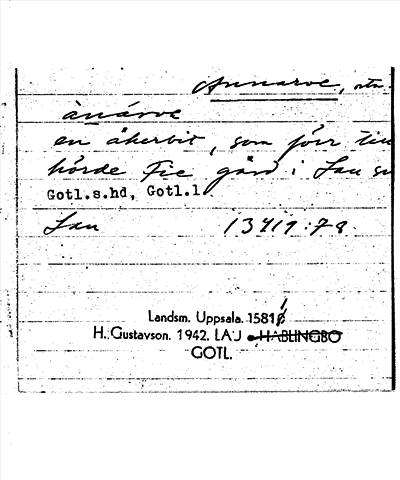 Annarve, ortn.
ànárve
en åkerbit, som förr till
hörde Fie gård i Lau sn
Gotl.s.hd, Gotl.l.
Lau 13419:78.
Landsm. Uppsala. 1581
H. Gustavson. 1942. LAU HABLINGBO
GOTL.